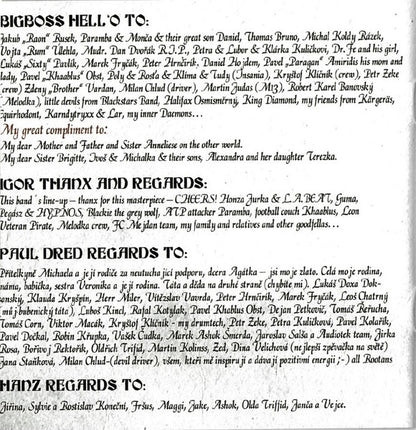 BIGBOSS HELL'O TO:
Jakub "Raon" Rusek, Paramba & Monča & their great son Daniel, Thomas Bruno, Michal Koldy Rázek,
Vojta "Rum" Úlehla, Mudr. Dan Dvořák R.I.P., Petra & Lubor & Klárka Kuličkovi, Dr. Fe and his girl,
Lukáš "Sixty" Pavlík, Marek Fryčák, Peter Hrnčirik, Daniel Hojdem, Pavel "Paragan" Amiridis his mom and
lady, Pavel "Khaablus" Obst, Poly & Rosťa & Klíma & Tudy (Insania), Kryštof Kličník (crew), Petr Zeke
(crew) Zdeny "Brother" Vardan, Milan Chlud (driver), Martin Judas (M13), Robert Karel Banovský
(Melodka), little devils from Blackstars Band, Halifax Osmisměrný, King Diamond, my friends from Kärgeräs,
Equirhodont, Karndytryxx & Lar, my inner Daemons...
My great compliment to:
My dear Mother and Father and Sister Anneliese on the other world.
My dear Sister Brigitte, Ivoš & Michalka & their sons, Alexandra and her daughter Terezka.
IGOR THANX AND REGARDS:
This band´s line-up – thanx for this masterpiece – CHEERS! Honza Jurka & L.A.BEAT, Guma,
Pegász & HYPNOS, Blackie the grey wolf, ATP attacker Paramba, football couch Khaablus, Leon
Veteran Pirate, Melodka crew, FC Mejdan team, my family and relatives and other goodfellas...
PAUL DRED REGARDS TO:
Přítelkyně Michaela a její rodiče za neutuchající podporu, dcera Agátka – jsi moje zlato. Celá moje rodina,
máma, babička, sestra Veronika a její rodina. Táta a děda na druhé straně (chybíte mi). Lukáš Doxa Dok-
oanský, Klauda Kryšpín, Herr Miler, Vítězslav Vavrda, Peter Hrnčirik, Marek Fryčák, Leoš Chatrný
(můj bubenický táta), Luboš Kincl, Rafal Kotylak, Pavel Khablus Obst, Dejan Petkovič, Tomáš Řeřucha,
Tomáš Corn, Viktor Macák, Kryštof Kličník - my drumtech, Petr Zeke, Petra Kuličková, Pavel Kolařík,
Pavel Dočkal, Robin Krupka, Vašek Čudka, Marek Ashok Šmerda, Jaroslav Salša a Audiotek team, Jirka
Rosa, Bořivoj Rektořík, Oldřich Trifid, Martin Kolinss, Zed, Dina Velichová (ne lepší zpěvačka na světě)
Jana Staňková, Milan Chlud-(devil driver), všem, kteří mě inspirují a dávají pozitivní energii ;-) all Rootans
HANZ REGARDS TO:
Jiřina, Sylvie a Rostislav Koneční, Fršus, Maggi, Jake, Ashok, Olda Triffid, Janča a Vejce.